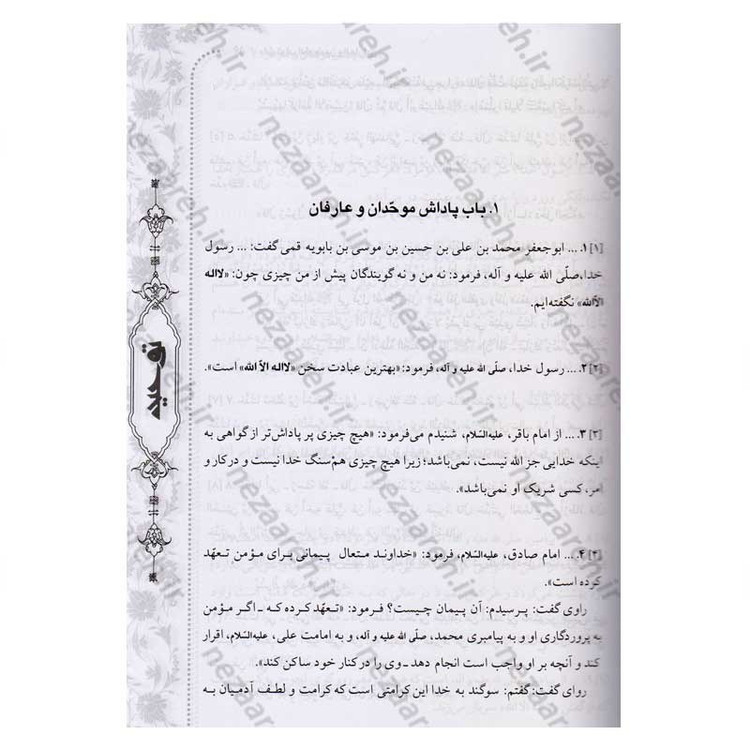 ۱. باب پاداش موحّدان و عارفان
[۱] ۱. ... ابوجعفر محمد بن علی بن حسین بن موسی بن بابویه قمی گفت: ... رسول
خدا،صلّی الله علیه و آله، فرمود: نه من و نه گویندگان پیش از من چیزی چون: «لااله
الّاالله» نگفته‌ایم.
[۲] ۲. ... رسول خدا، صلّی الله علیه و آله، فرمود: «بهترین عبادت سخن «لااله الاّ الله» است».
[۳] ۳. ... از امام باقر، علیه‌السّلام، شنیدم می‌فرمود: «هیچ چیزی پر پاداش‌تر از گواهی به
اینکه خدایی جز الله نیست، نمی‌باشد؛ زیرا هیچ چیزی هم‌سنگ خدا نیست و در کار و
امر، کسی شریک او نمی‌باشد».
[۴] ۴. ... امام صادق، علیه‌السّلام، فرمود: «خداوند متعال پیمانی برای مؤمن تعهّد
کرده است».
راوی گفت: پرسیدم: آن پیمان چیست؟ فرمود: «تعهّد کرده که ـ اگر مؤمن
به پروردگاری او و به پیامبری محمد، صلّی الله علیه و آله، و به امامت علی، علیه‌السّلام، اقرار
کند و آنچه بر او واجب است انجام دهد ـ وی را در کنار خود ساکن کند».
روای گفت: گفتم: سوگند به خدا این کرامتی است که کرامت و لطف آدمیان به
توحید
nezaareh.ir